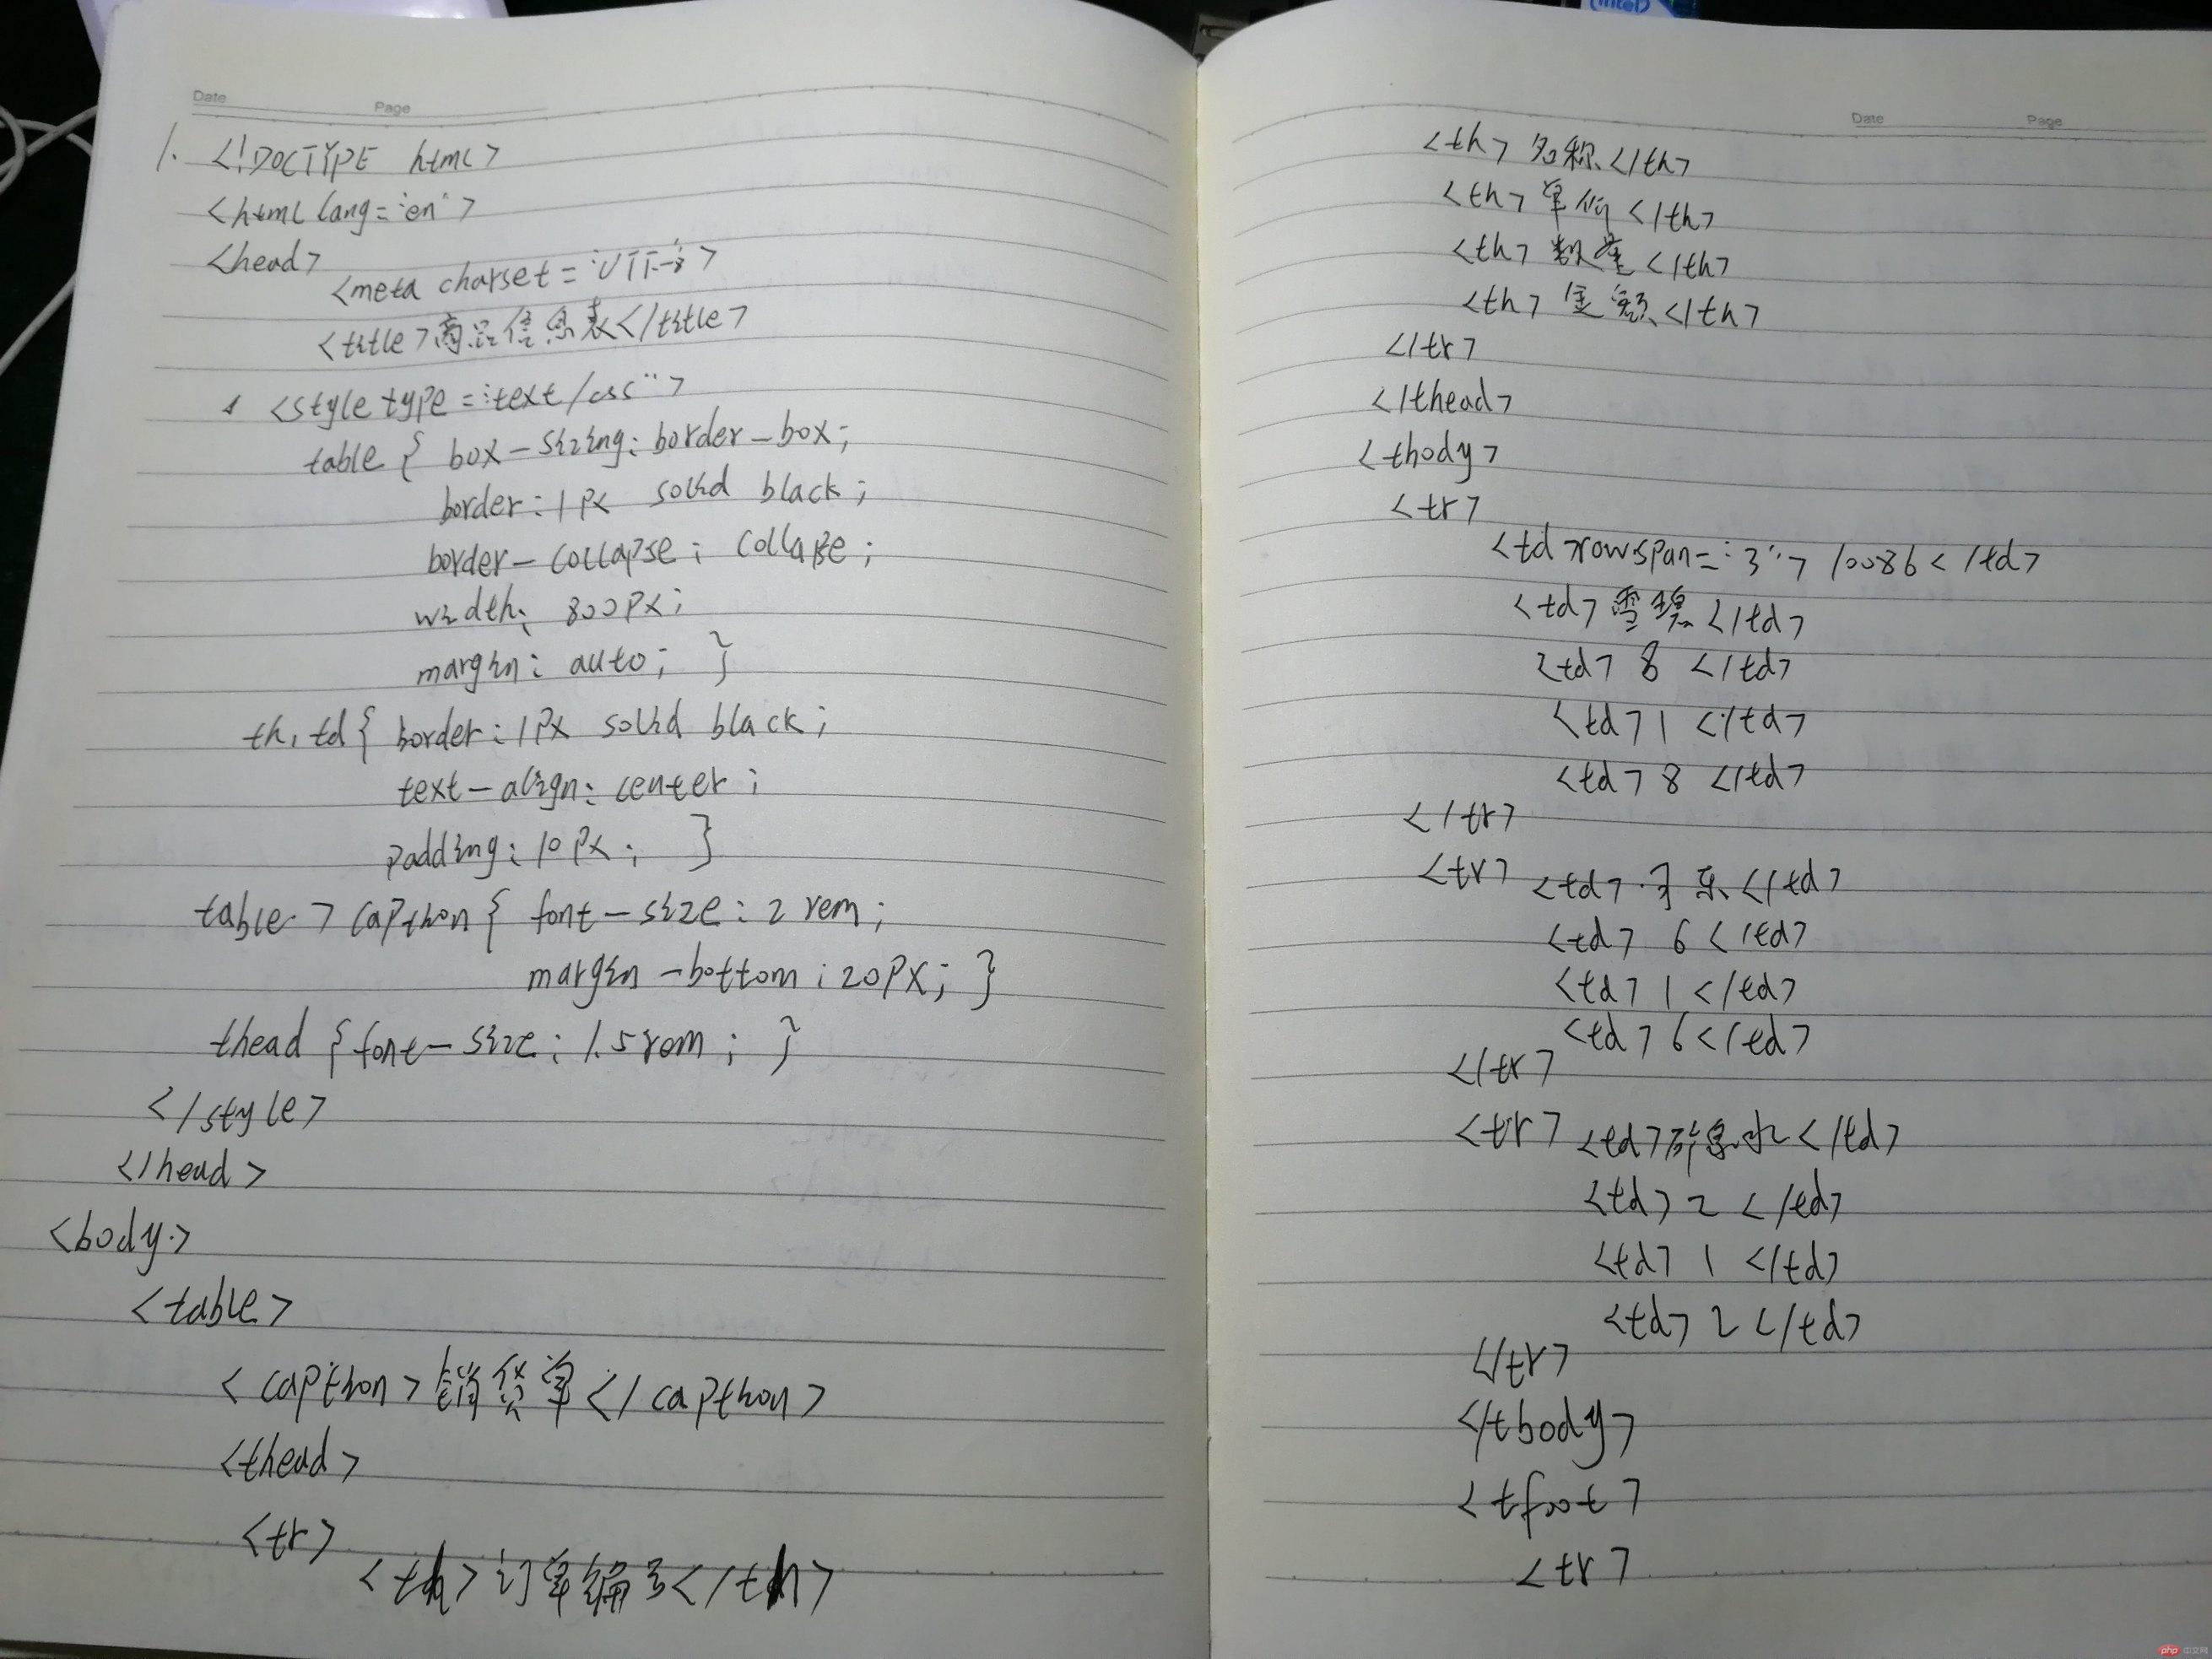 (intel)
Date Page
1. <!DOCTYPE html>
<html lang="en">
<head>
<meta charset="UTF-8">
<title>商品信息表</title>
<style type="text/css">
table { box-sizing: border-box;
border: 1px solid black;
border-collapse: collapse;
width: 800px;
margin: auto; }
th, td { border: 1px solid black;
text-align: center;
padding: 10px; }
table > caption { font-size: 2rem;
margin-bottom: 20px; }
thead { font-size: 1.5rem; }
</style>
</head>
<body>
<table>
<caption>销货单</caption>
<thead>
<tr>
<th>订单编号</th>
Date Page
<th>名称</th>
<th>单价</th>
<th>数量</th>
<th>金额</th>
</tr>
</thead>
<tbody>
<tr>
<td rowspan="3">10086</td>
<td>雪碧</td>
<td>8</td>
<td>1</td>
<td>8</td>
</tr>
<tr> <td>可乐</td>
<td>6</td>
<td>1</td>
<td>6</td>
</tr>
<tr> <td>矿泉水</td>
<td>2</td>
<td>1</td>
<td>2</td>
</tr>
</tbody>
<tfoot>
<tr>
php 中文网